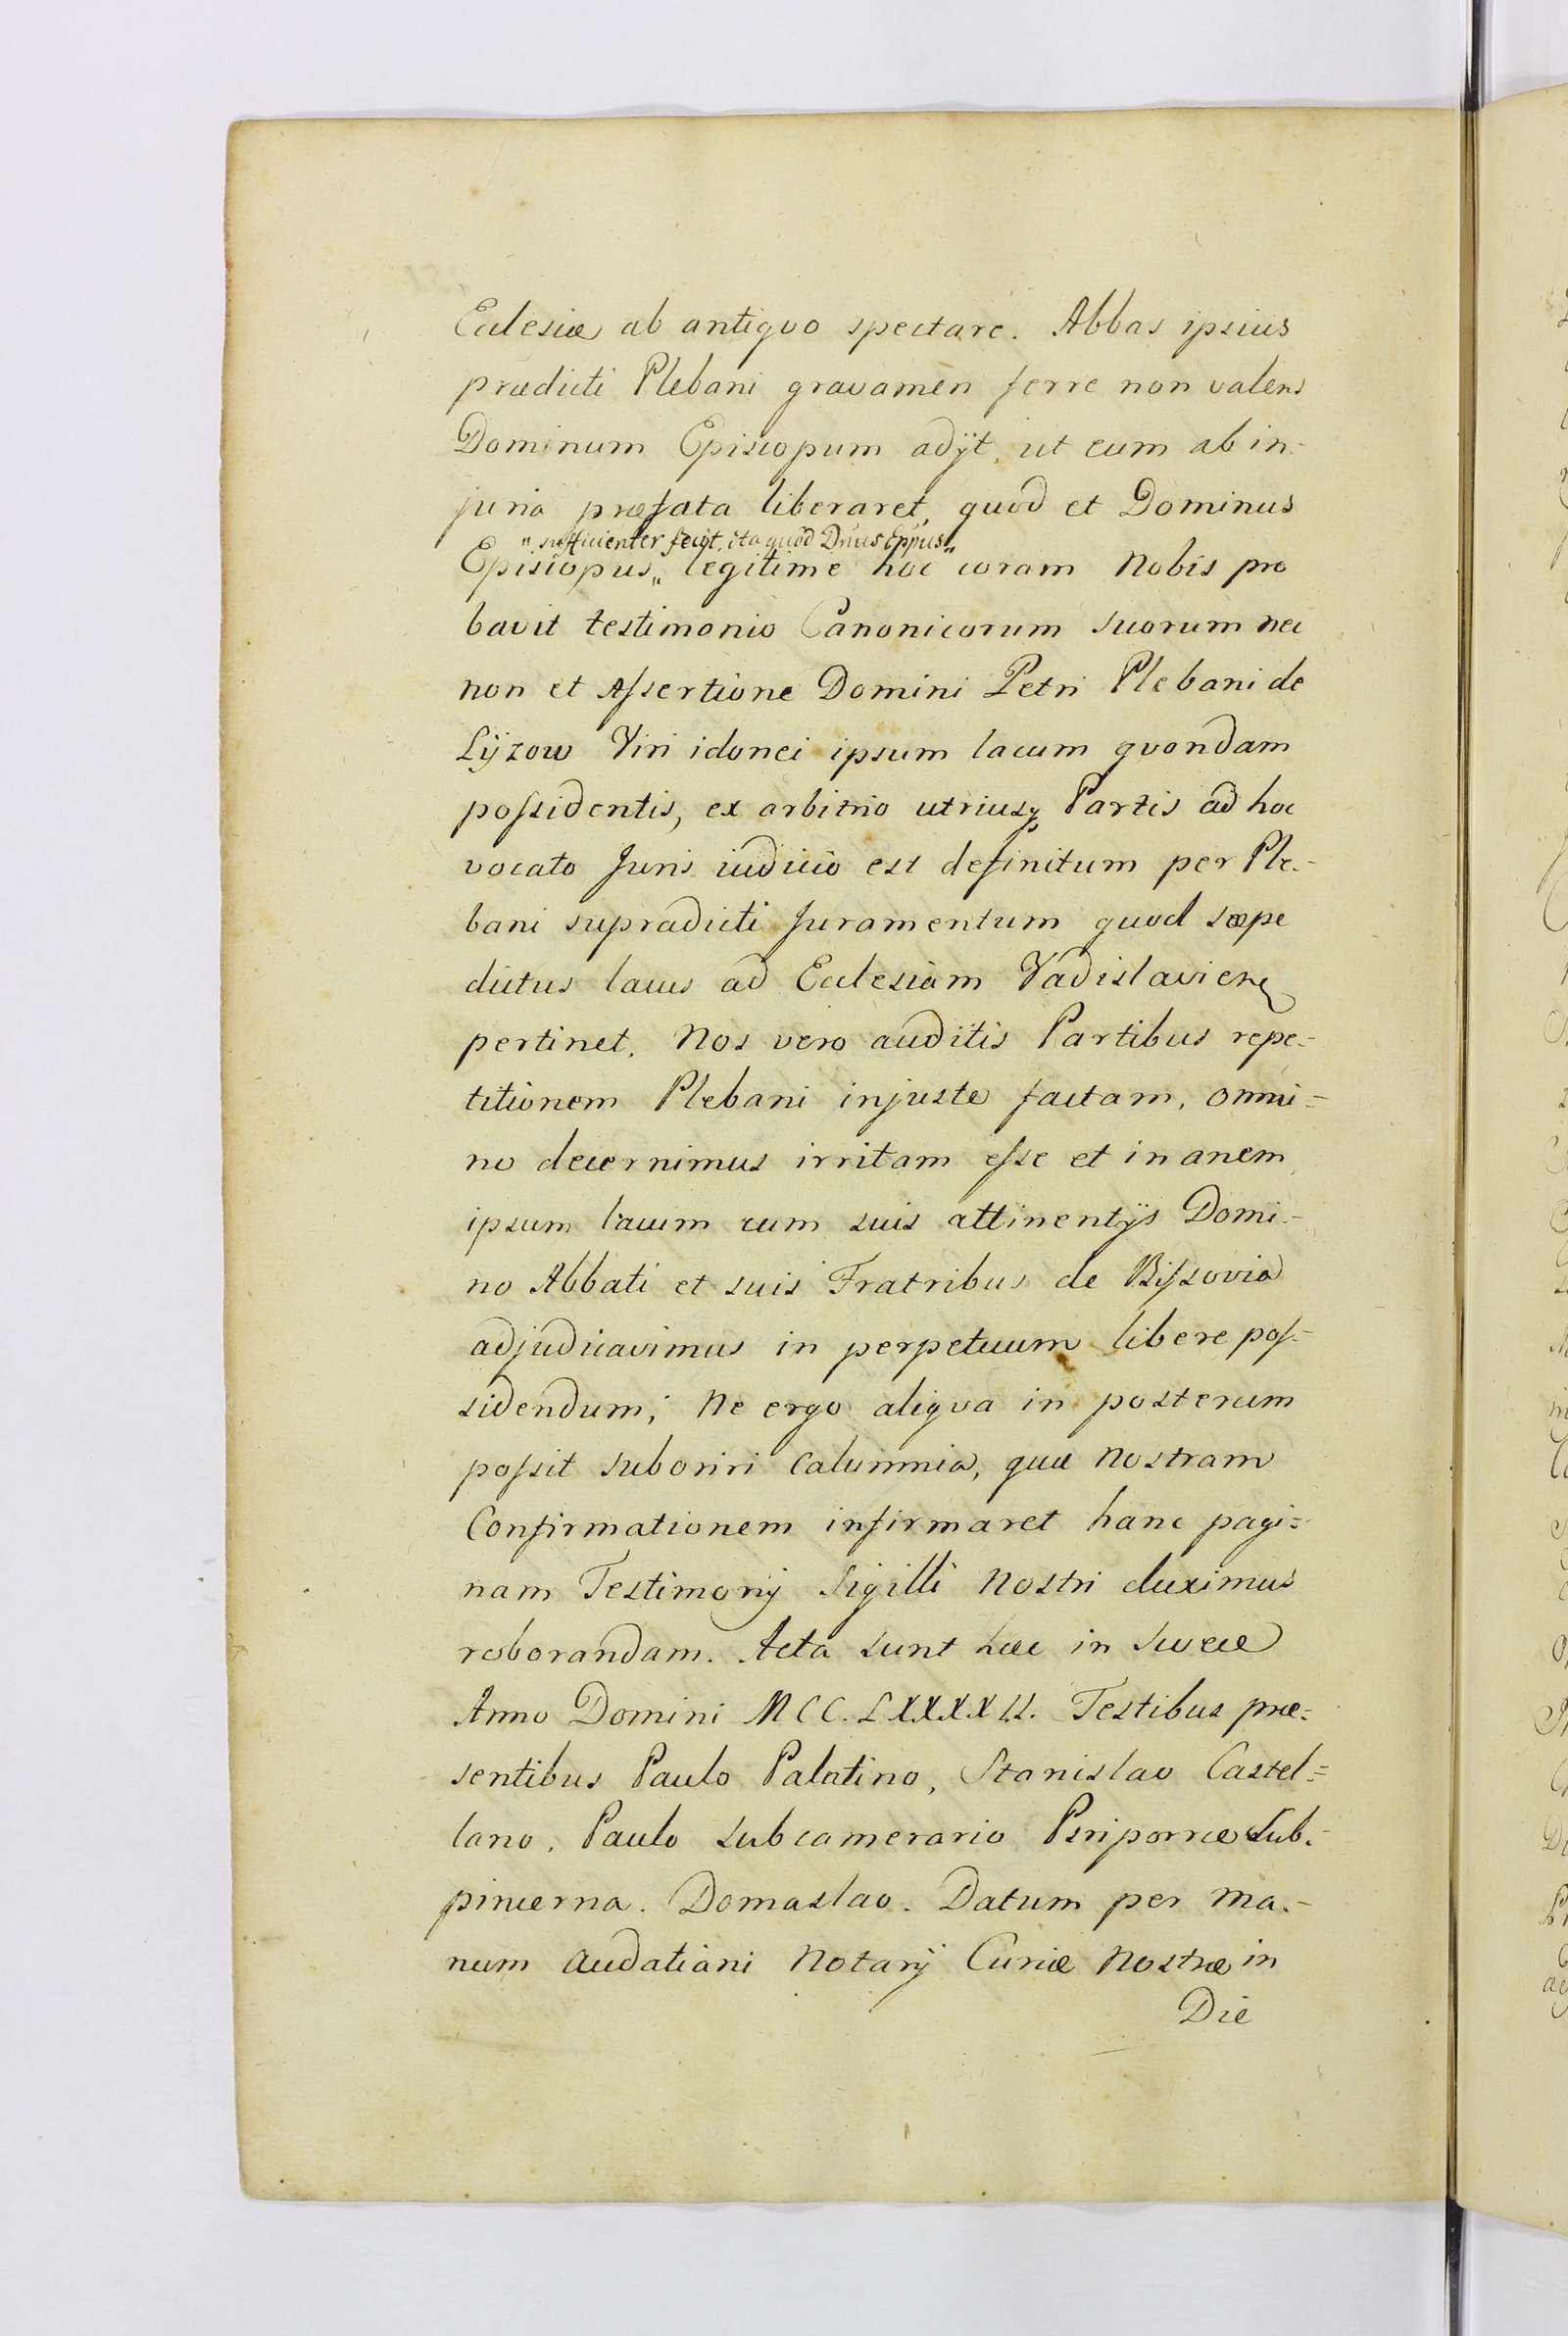 Ecclesiæ ab antiquo spectare. Abbas ipsius
prædicti Plebani gravamen ferre non valens
Dominum Episcopum adÿt, ut eum ab in-
juria præfata liberaret, quod et Dominus
„ sufficienter fecit, ita quod Dnus Eppus „
Episcopus „ legitime hoc coram Nobis pro
bavit testimonio Canonicorum suorum nec
non et Aſsertione Domini Petri Plebani de
Lÿzow Viri idonei ipsum lacum quondam
poſsidentis, ex arbitrio utriusq Partis ad hoc
vocato Juris iudicio est definitum per Ple-
bani supradicti Juramentum quod sæpe
dictus lacus ad Ecclesiam Vadislavien
pertinet. Nos vero auditis Partibus repe-
titionem Plebani injuste factam, omni=
no decernimus irritam eſse et inanem,
ipsum lacum cum suis attinentÿs Domi-
no Abbati et suis Fratribus de Biſsovia
adjudicavimus in perpetuum libere poſ-
sidendum; Ne ergo aliqua in posterum
poſsit suboriri calumnia, quæ Nostram
Confirmationem infirmaret hanc pagi=
nam Testimonÿ Sigilli Nostri duximus
roborandam. Acta sunt hæc in Swece
Anno Domini MCC.LXXXXII. Testibus præ=
sentibus Paulo Palatino, Stanislao Castel=
lano. Paulo Subcamerario Psriporcæ Sub-
pincerna. Domaslao. Datum per ma-
num Audatiani Notarÿ Curiæ Nostræ in
Die